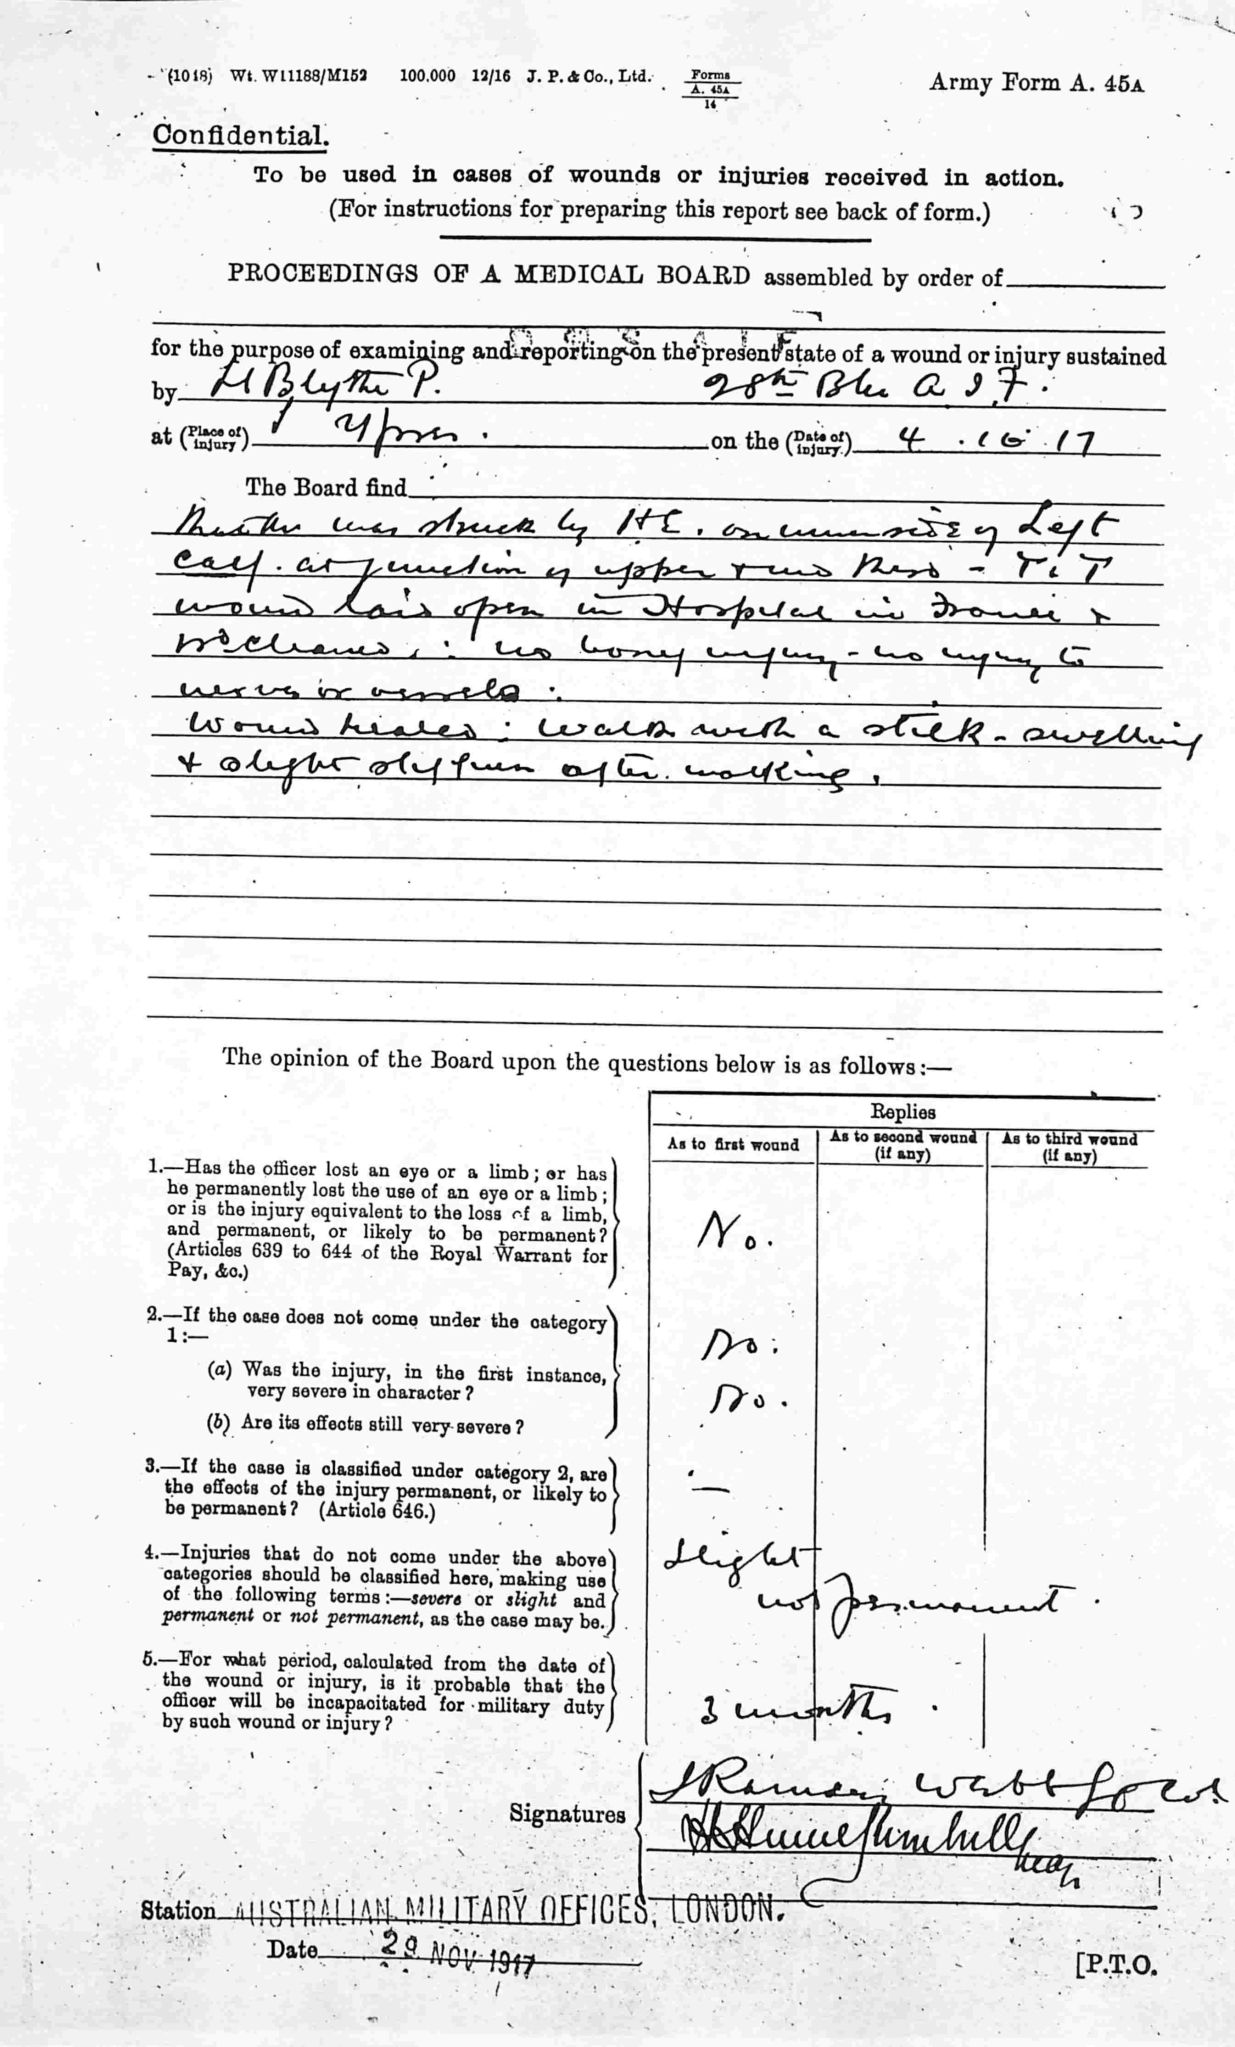 (1018) Wt. W11188/M152 100,000 12/16 J. P. & Co., Ltd. Forms A. 45A 14 Army Form A. 45A
Confidential.
To be used in cases of wounds or injuries received in action.
(For instructions for preparing this report see back of form.)
PROCEEDINGS OF A MEDICAL BOARD assembled by order of
for the purpose of examining and reporting on the present state of a wound or injury sustained
by Lt Blythe P. 28th Bn A.I.F.
at (Place of injury) Ypres. on the (Date of injury.) 4.10.17
The Board find
that he was struck by H.E. on inner side of Left
calf. at junction of upper & mid third - T & T
wound laid open in Hospital in France &
cleaned, : no bony injury - no injury to
nerves or vessels.
Wound healed : walks with a stick - swelling
& slight stiffness after walking.
The opinion of the Board upon the questions below is as follows:—
Replies
As to first wound As to second wound (if any) As to third wound (if any)
1.—Has the officer lost an eye or a limb; or has
he permanently lost the use of an eye or a limb;
or is the injury equivalent to the loss of a limb,
and permanent, or likely to be permanent? No.
(Articles 639 to 644 of the Royal Warrant for
Pay, &c.)
2.—If the case does not come under the category
1:— No.
(a) Was the injury, in the first instance,
very severe in character? No.
(b) Are its effects still very severe?
3.—If the case is classified under category 2, are
the effects of the injury permanent, or likely to —
be permanent? (Article 646.)
4.—Injuries that do not come under the above Slight
categories should be classified here, making use
of the following terms:—severe or slight and not permanent.
permanent or not permanent, as the case may be.
5.—For what period, calculated from the date of
the wound or injury, is it probable that the
officer will be incapacitated for military duty 3 months.
by such wound or injury?
Ramsay Webb
Signatures
Maj.
Station AUSTRALIAN MILITARY OFFICES, LONDON.
Date 29 NOV 1917
[P.T.O.